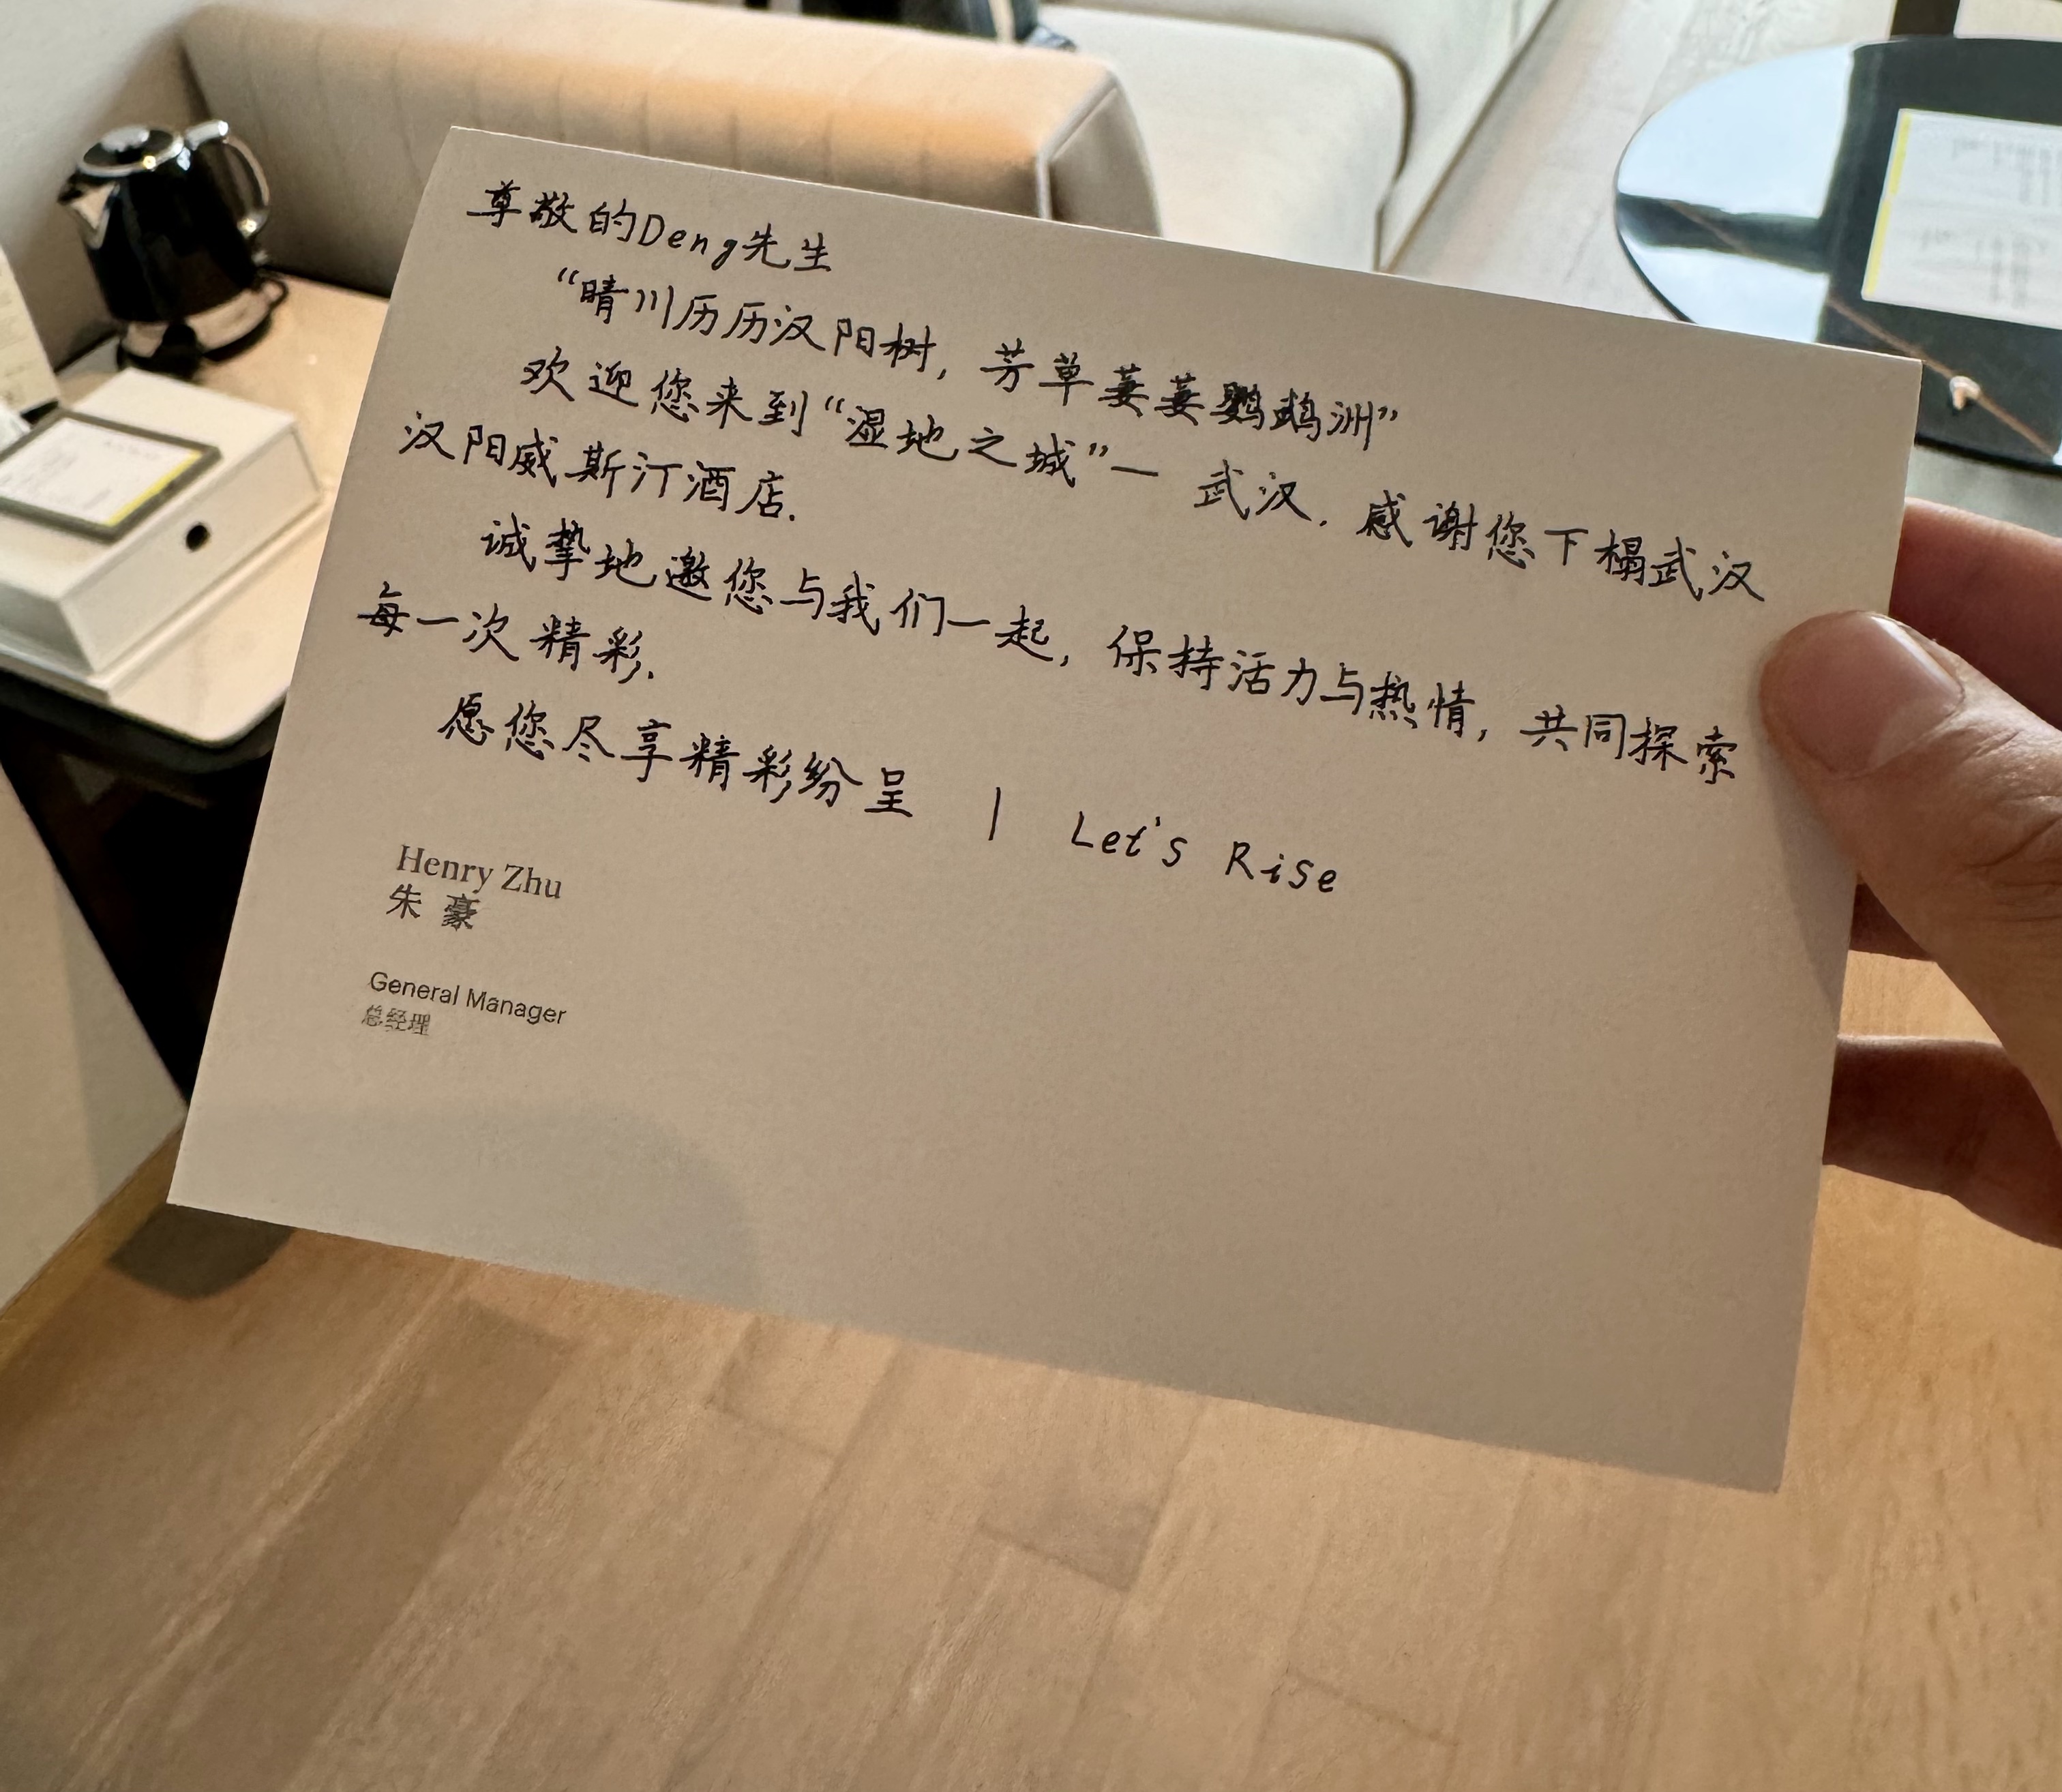 尊敬的Deng先生
“晴川历历汉阳树，芳草萋萋鹦鹉洲”
欢迎您来到“湿地之城”— 武汉. 感谢您下榻武汉
汉阳威斯汀酒店.
诚挚地邀您与我们一起，保持活力与热情，共同探索
每一次精彩.
愿您尽享精彩纷呈 | Let's Rise
Henry Zhu
朱 豪
General Manager
总经理